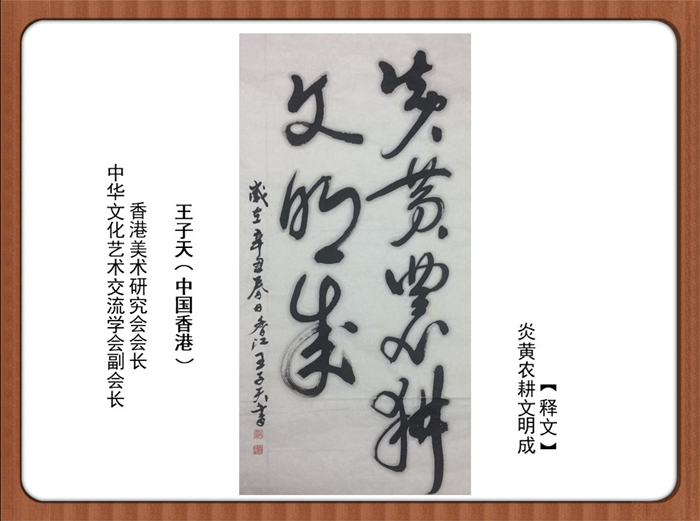 【释文】
炎黄农耕文明成
炎黄农耕
文明成
岁在辛丑春日香江王子天书
王子天（中国香港）
香港美术研究会会长
中华文化艺术交流学会副会长